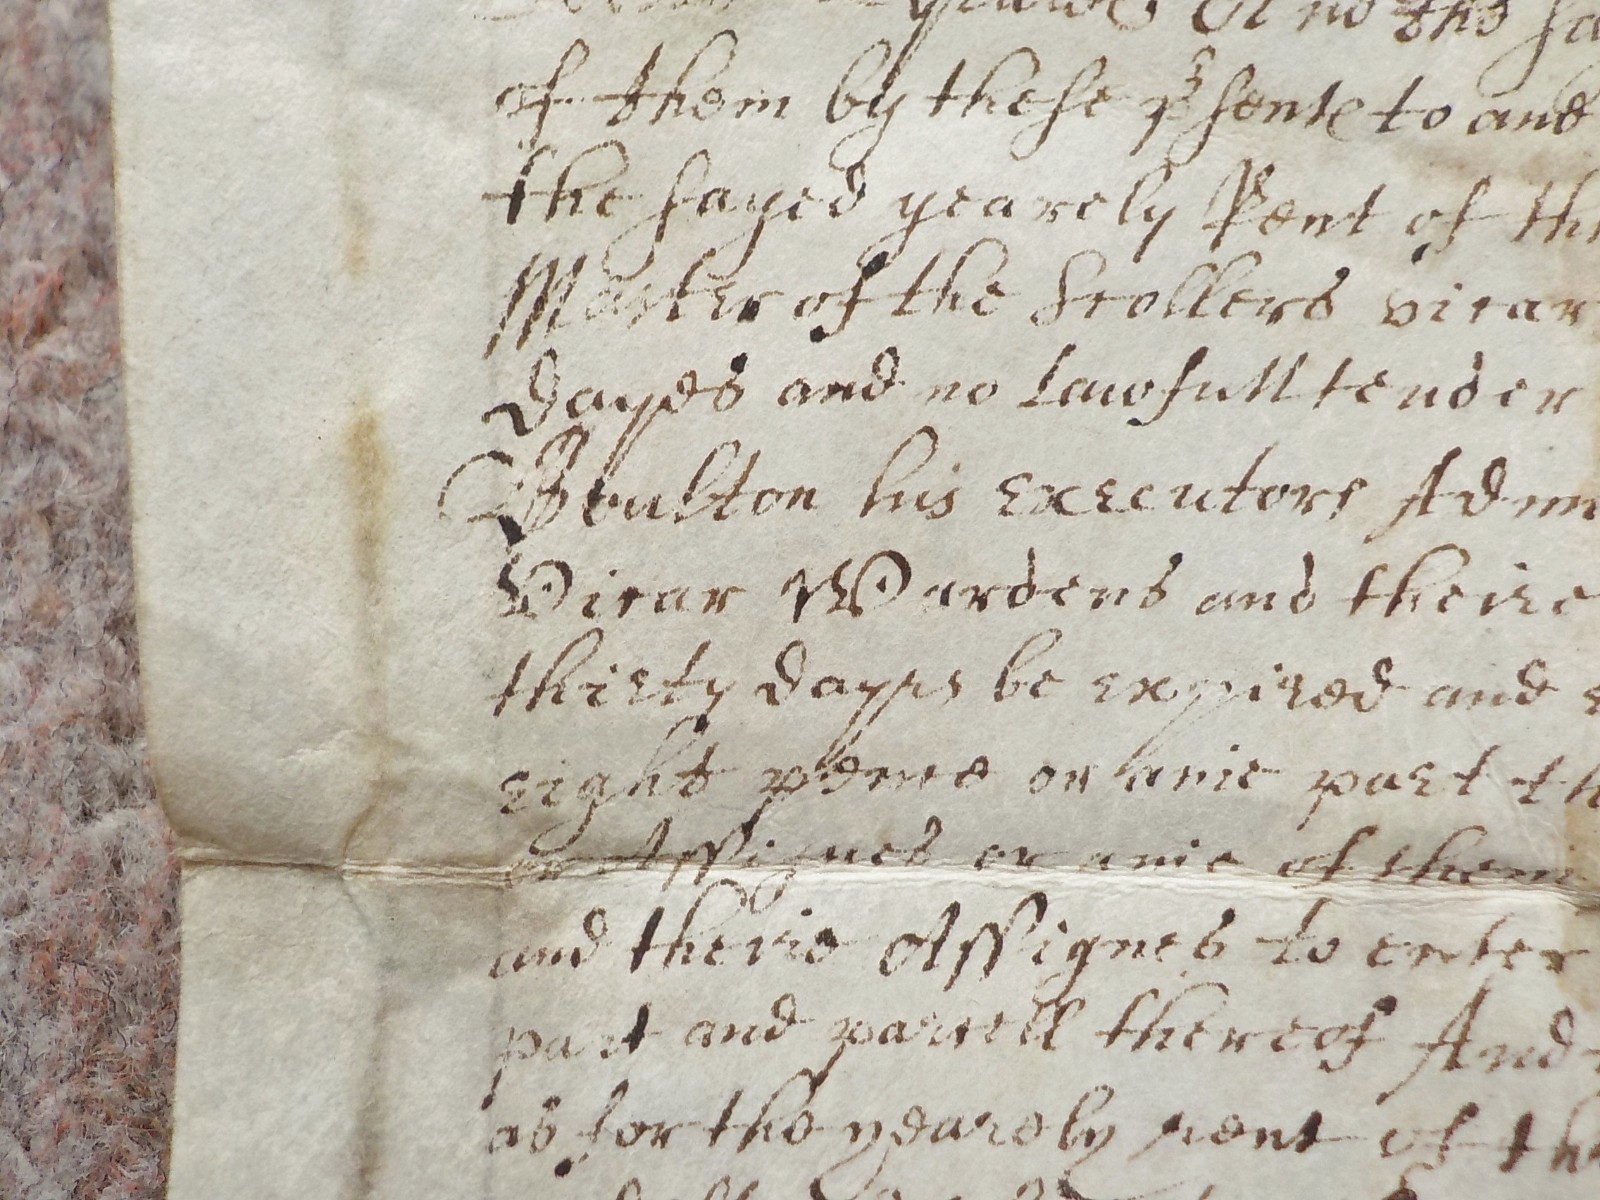 of them by these psente to and
the sayed yearely Rent of th
Master of the Scollers vicar
dayes and no Lawfull tender
Boulton his executors Admi
Vicar Wardens and theire
thirty dayes be expired and
eight pence or anie part th
or Assignes or anie of them
and theire Assignes to enter
part and parcell thereof And
as for the yearely rent of th